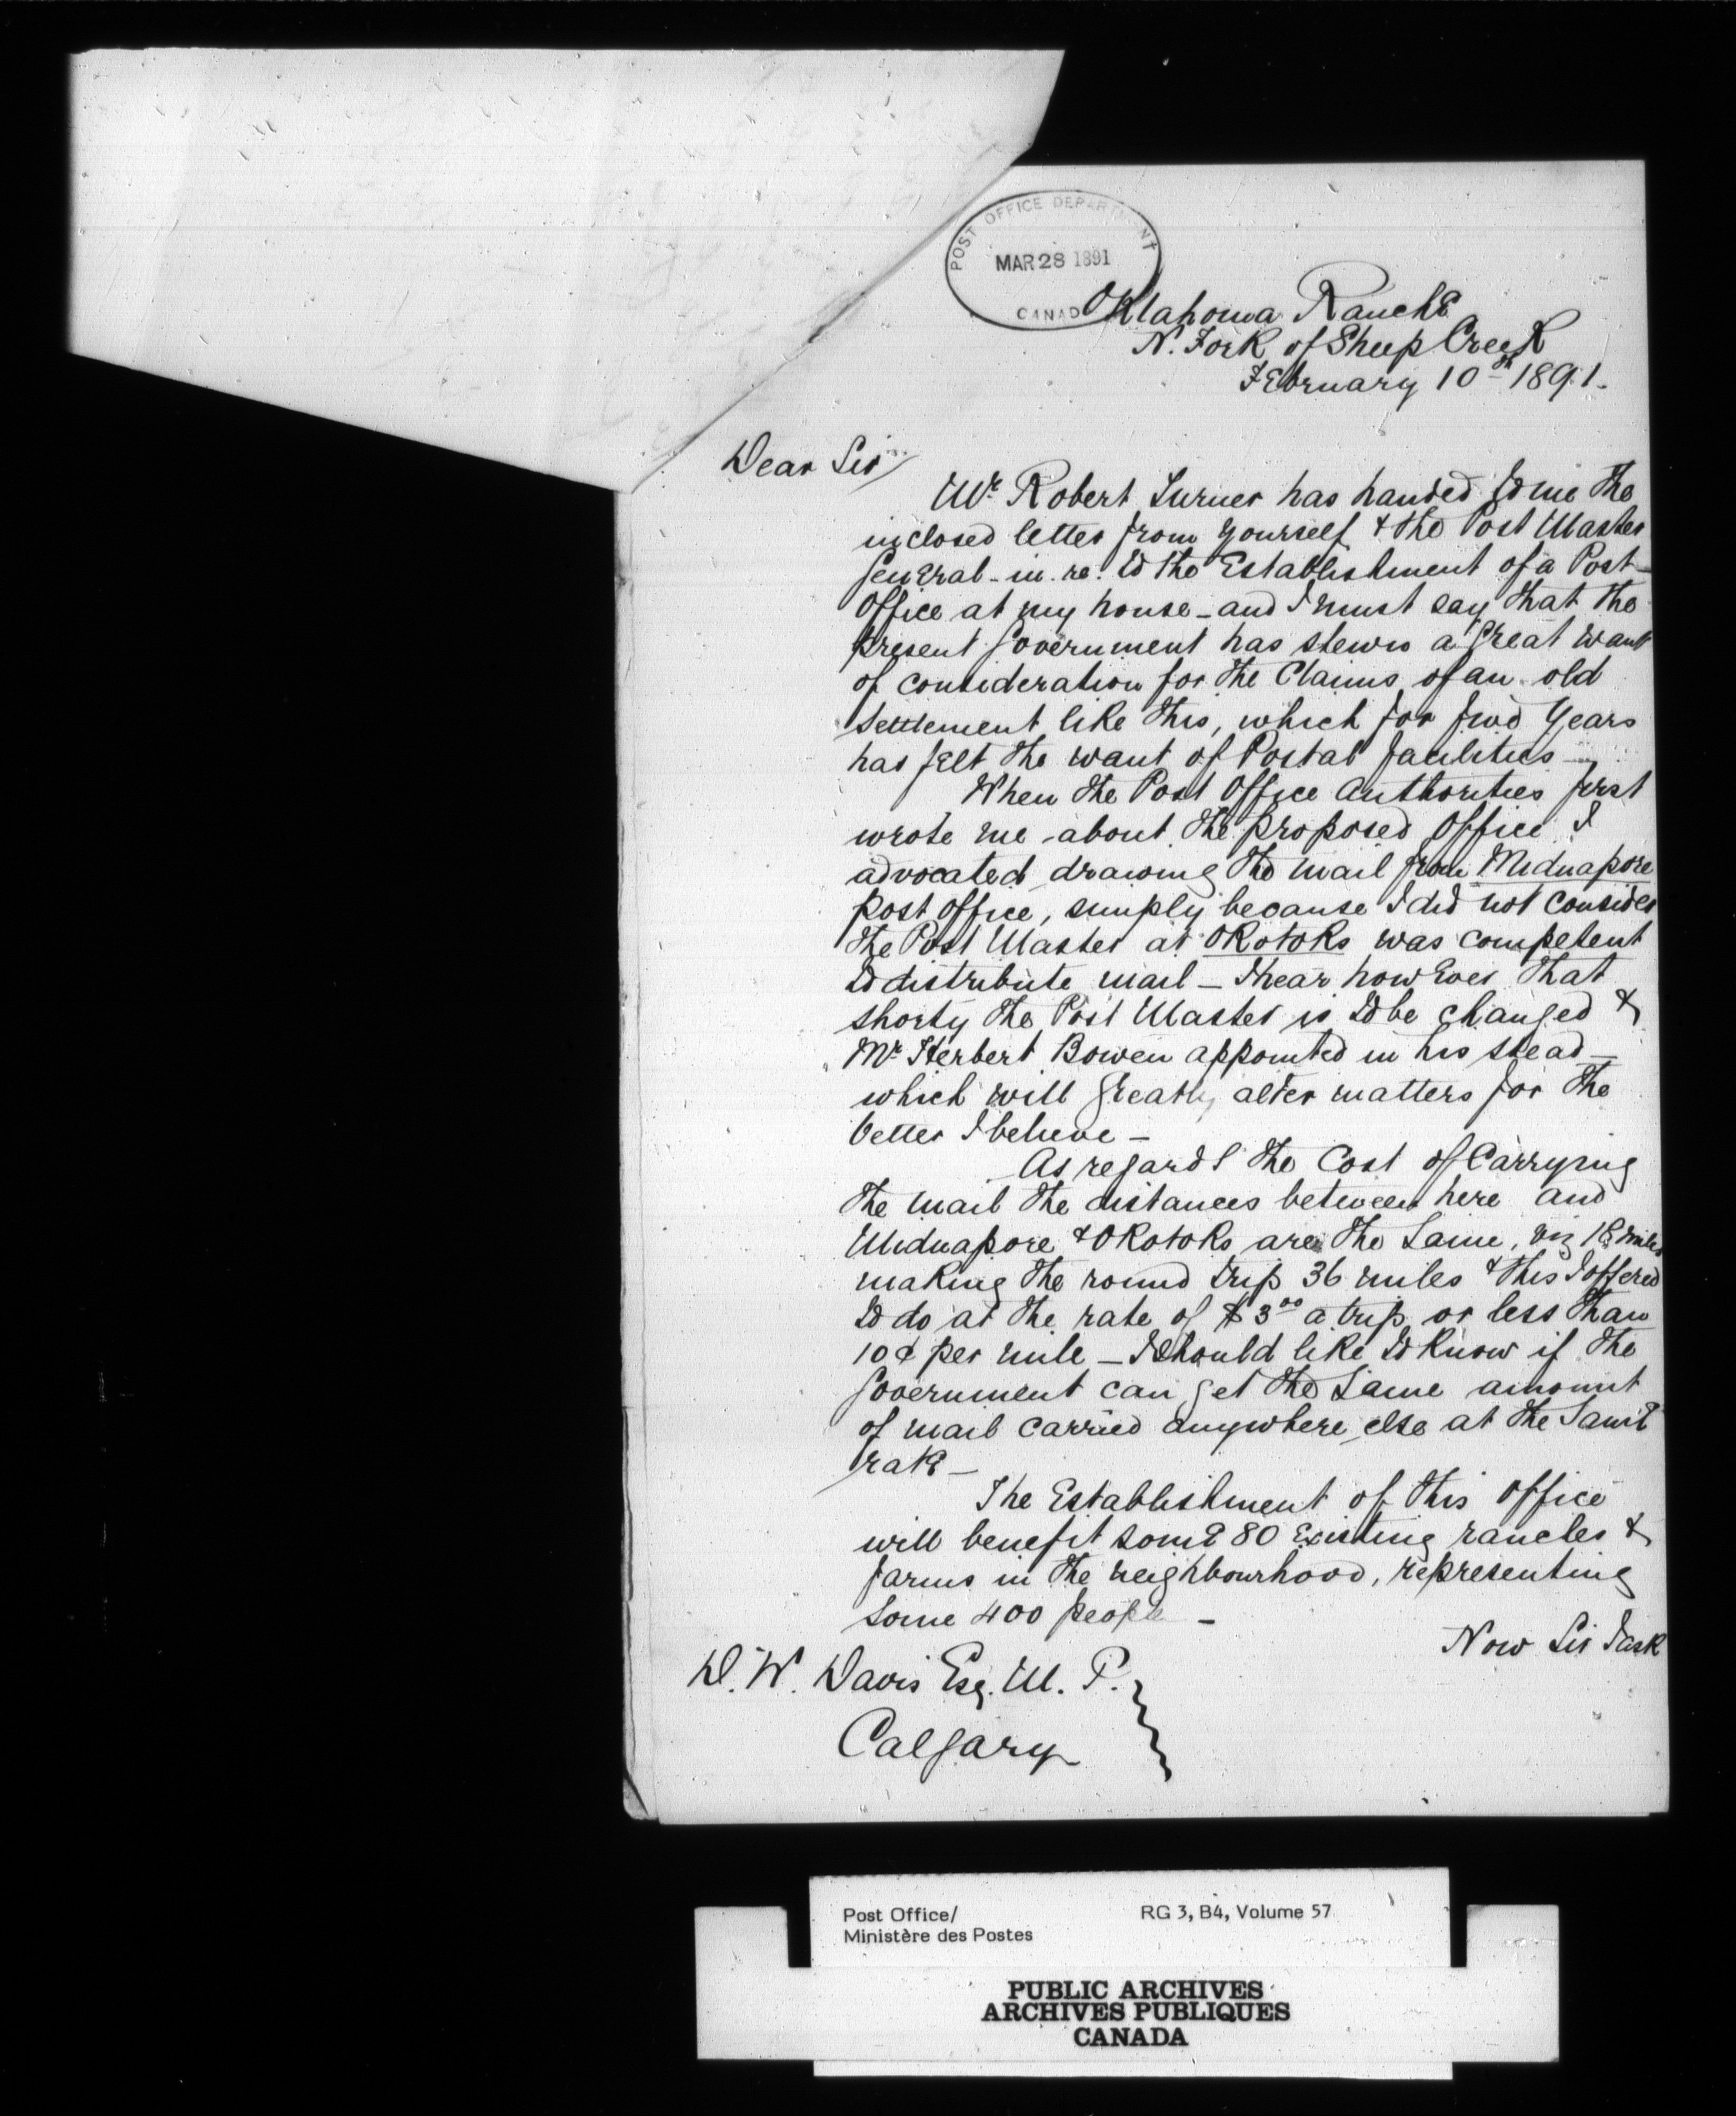 POST OFFICE DEPARTMENT
MAR 28 1891
CANADA
Oklahoma Ranche
N. Fork of Sheep Creek
February 10th 1891.
Dear Sir
Mr. Robert Turner has handed to me the
inclosed letter from yourself & the Post Master
General - in. re. to the Establishment of a Post-
Office at my house - and I must say that the
present Government has shewn a great want
of consideration for the Claims of an old
settlement like this, which for two Years
has felt the want of Postal facilities -
When the Post Office Authorities first
wrote me about the proposed Office I
advocated drawing the mail from Midnapore
post office, simply because I did not consider
the Post Master at Okotoks was competent
to distribute mail - I hear however that
shorty the Post Master is to be changed &
Mr. Herbert Bowen appointed in his stead -
which will greatly alter matters for the
better I believe -
As regards the Cost of Carrying
the mail the distances between here and
Midnapore & Okotoks are the same, viz 18 miles
making the round trip 36 miles & this I offered
to do at the rate of $3.00 a trip or less than
10¢ per mile - I should like to know if the
Government can get the same amount
of mail carried anywhere else at the same
rate -
The Establishment of this office
will benefit some 80 existing ranches &
farms in the neighbourhood, representing
some 400 people -
Now Sir I ask
D. W. Davis Esq. M. P.
Calgary
Post Office/
Ministère des Postes
RG 3, B4, Volume 57
PUBLIC ARCHIVES
ARCHIVES PUBLIQUES
CANADA